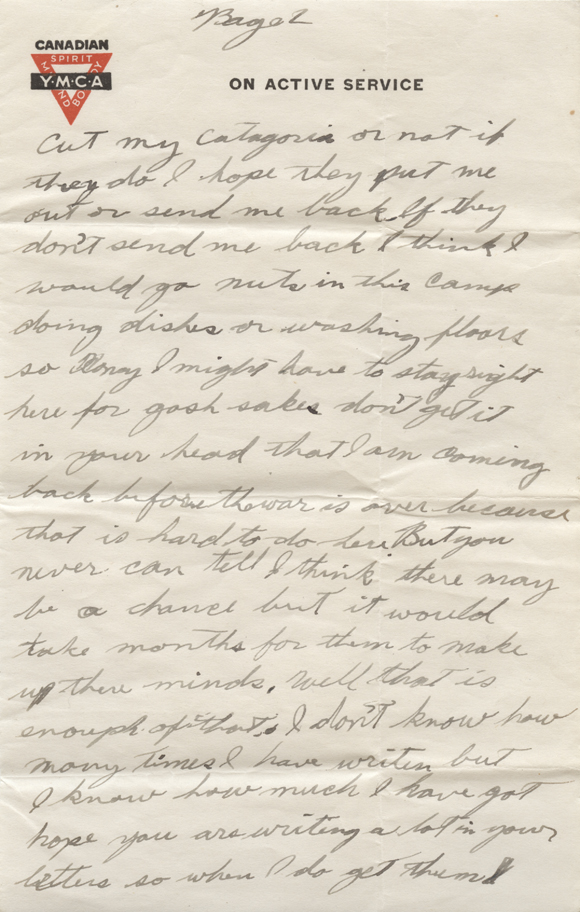 Page 2
CANADIAN
SPIRIT
Y·M·C·A
MIND BODY
ON ACTIVE SERVICE
cut my catagoria or not if
they do I hope they put me
out or send me back If they
don't send me back I think I
would go nuts in this camp
doing dishes or washing floors
so Honey I might have to stay right
here for gosh sakes don't get it
in your head that I am coming
back before the war is over because
that is hard to do here But you
never can tell I think there may
be a chance but it would
take months for them to make
up there minds. Well that is
enough of that, I don't know how
many times I have writen but
I know how much I have got
hope you are writing a lot in your
letters so when I do get them